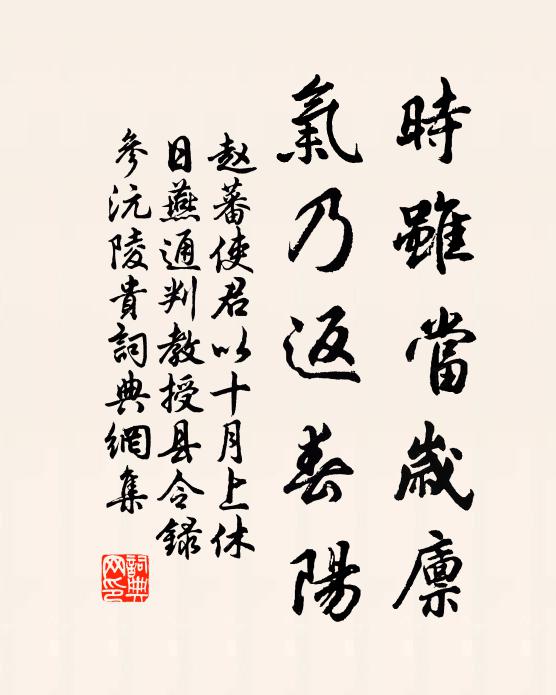 時雖當歲廪
氣乃返春陽
赵蕃使君以十月上休
日燕通判教授县令録
參沅陵貴詞典網集
詞典
网印